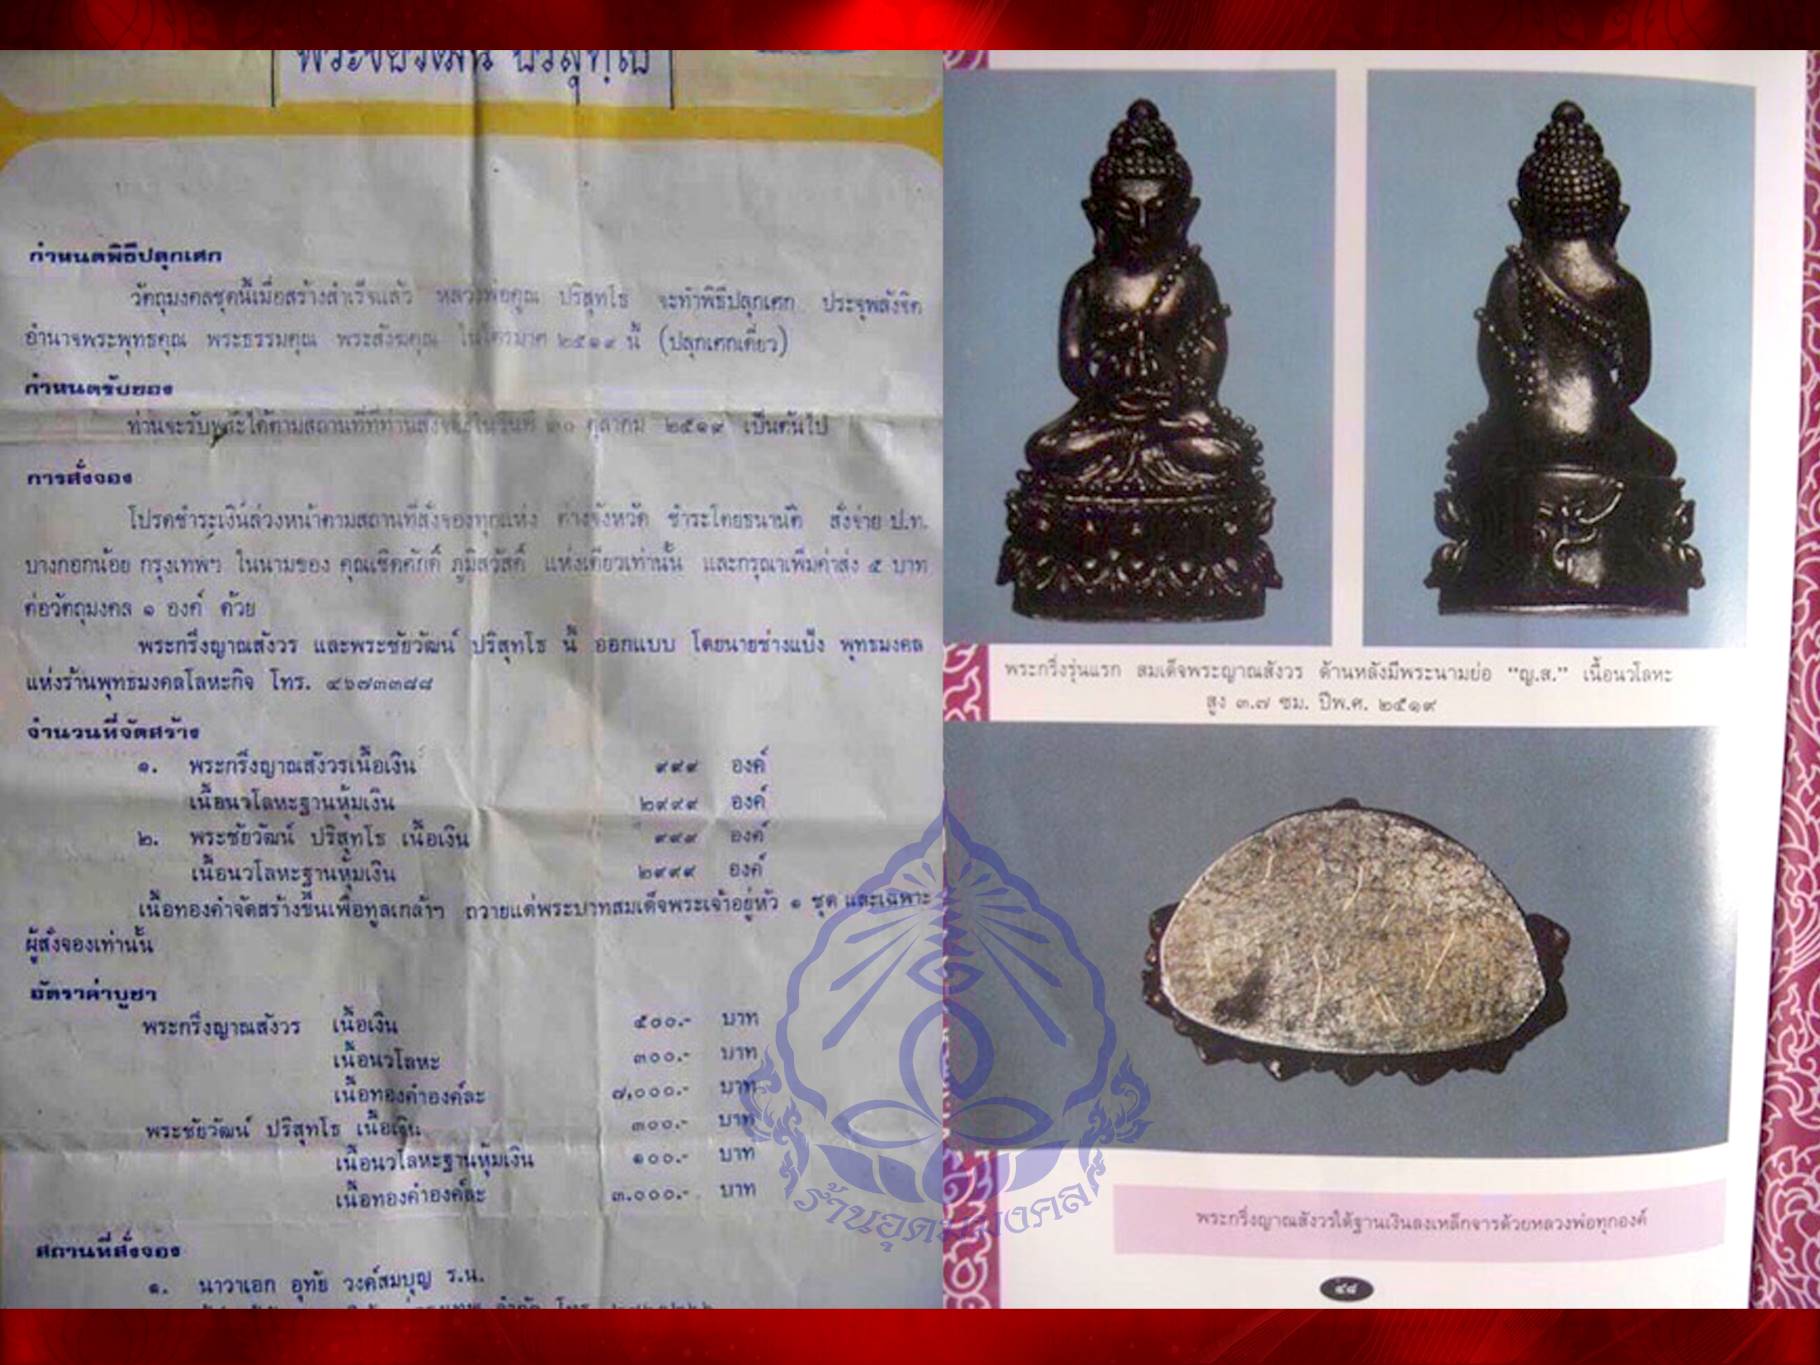 พระชัยวัฒน์ ปริสุทฺโธ
กำหนดพิธีปลุกเศก
วัตถุมงคลชุดนี้เมื่อสร้างสำเร็จแล้ว หลวงพ่อคูณ ปริสุทโธ จะทำพิธีปลุกเศก ประจุพลังจิต
อำนาจพระพุทธคุณ พระธรรมคุณ พระสังฆคุณ ในไตรมาศ ๒๕๑๙ นี้ (ปลุกเศกเดี่ยว)
กำหนดรับของ
ท่านจะรับพระได้ตามสถานที่ที่ท่านสั่งจองในวันที่ ๓๐ ตุลาคม ๒๕๑๙ เป็นต้นไป
การสั่งจอง
โปรดชำระเงินล่วงหน้าตามสถานที่สั่งจองทุกแห่ง ต่างจังหวัด ชำระโดยธนานัติ สั่งจ่าย ป.ท.
บางกอกน้อย กรุงเทพฯ ในนามของ คุณเชิดศักดิ์ ภูมิสวัสดิ์ แห่งเดียวเท่านั้น และกรุณาเพิ่มค่าส่ง ๕ บาท
ต่อวัตถุมงคล ๑ องค์ ด้วย
พระกริ่งญาณสังวร และพระชัยวัฒน์ ปริสุทโธ นี้ ออกแบบ โดยนายช่างแป๊ง พุทธมงคล
แห่งร้านพุทธมงคลโลหะกิจ โทร. ๔๖๗๓๓๘๘
จำนวนที่จัดสร้าง
๑. พระกริ่งญาณสังวรเนื้อเงิน ๙๙๙ องค์
เนื้อนวโลหะฐานหุ้มเงิน ๒๙๙๙ องค์
๒. พระชัยวัฒน์ ปริสุทโธ เนื้อเงิน ๙๙๙ องค์
เนื้อนวโลหะฐานหุ้มเงิน ๒๙๙๙ องค์
เนื้อทองคำจัดสร้างขึ้นเพื่อทูลเกล้าฯ ถวายแด่พระบาทสมเด็จพระเจ้าอยู่หัว ๑ ชุด และเฉพาะ
ผู้สั่งจองเท่านั้น
อัตราค่าบูชา
พระกริ่งญาณสังวร เนื้อเงิน ๕๐๐.- บาท
เนื้อนวโลหะ ๓๐๐.- บาท
เนื้อทองคำองค์ละ ๗,๐๐๐.- บาท
พระชัยวัฒน์ ปริสุทโธ เนื้อเงิน ๓๐๐.- บาท
เนื้อนวโลหะฐานหุ้มเงิน ๑๐๐.- บาท
เนื้อทองคำองค์ละ ๓.๐๐๐.- บาท
สถานที่สั่งจอง
๑. นาวาเอก อุทัย วงค์สมบุญ ร.น.
พระกริ่งรุ่นแรก สมเด็จพระญาณสังวร ด้านหลังมีพระนามย่อ "ญ.ส." เนื้อนวโลหะ
สูง ๓.๗ ซม. ปีพ.ศ. ๒๕๑๙
พระกริ่งญาณสังวรใต้ฐานเงินลงเหล็กจารด้วยหลวงพ่อทุกองค์
๔๘
ร้านอุดมมงคล